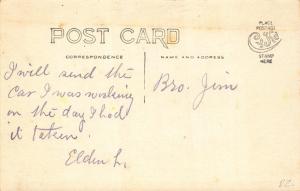 POST CARD
CORRESPONDENCE
NAME AND ADDRESS
PLACE
POSTAGE
STAMP
HERE
I will send the
car I was working
on the day I had
it taken.
Elden L.
Bro. Jim